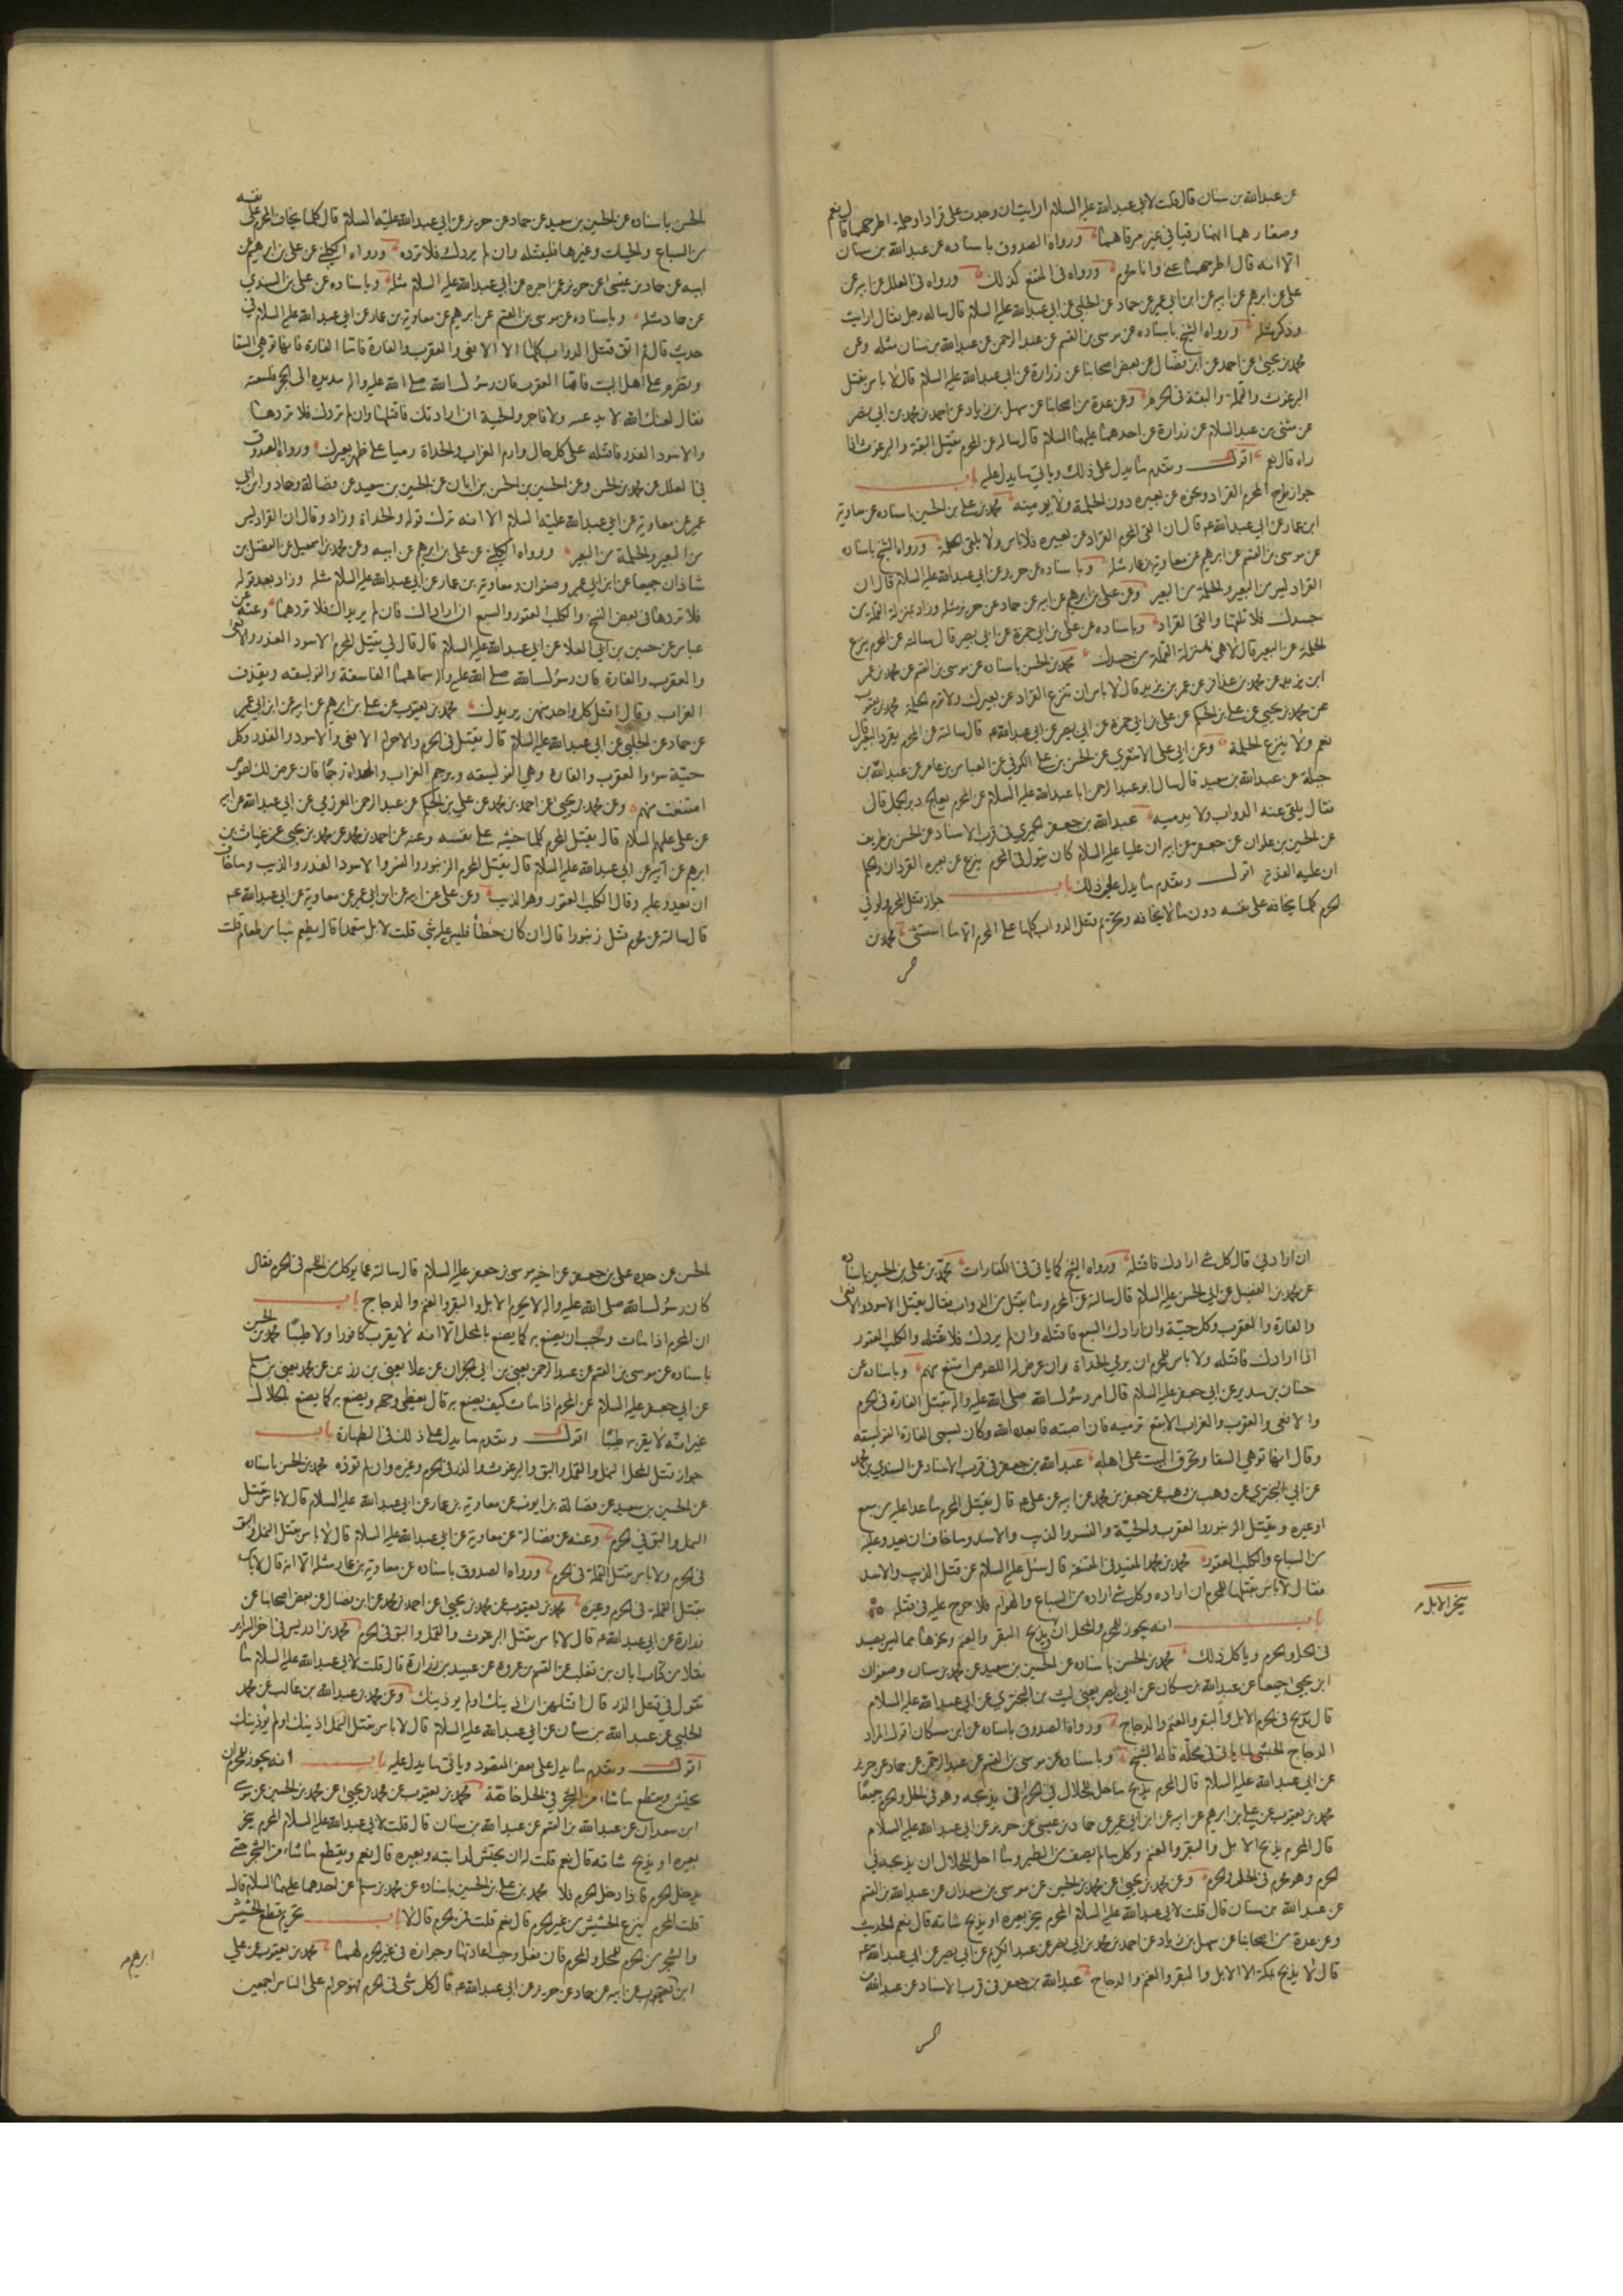 عن عبدالله بن سنان قال قلت لابي عبدالله عليه السلام ارايت ان وجدت علي قرادا وحلمة اطرحهما قال نعم
وصغار لهما انهما رقيا في غير مرقاهما ورواه الصدوق باسناده عن عبدالله بن سنان
الا انه قال اطرحهما عني وانا محرم ورواه في المقنع كذلك ورواه في العلل عن ابيه عن
علي بن ابرهيم عن ابيه عن ابن ابي عمير عن حماد عن الحلبي عن ابي عبدالله عليه السلام قال ساله رجل فقال ارايت
وذكر مثله ورواه الشيخ باسناده عن موسى بن القسم عن عبد الرحمن عن عبدالله بن سنان مثله وعن
محمد بن يحيى عن احمد عن ابن فضال عن بعض اصحابنا عن زرارة عن ابي عبدالله عليه السلام قال لا باس بقتل
البرغوث والقملة والبقة في الحرم وعن عدة من اصحابنا عن سهل بن زياد عن احمد بن محمد بن ابي نصر
عن مثنى بن عبد السلام عن زرارة عن احدهما عليهما السلام قال سالته عن المحرم يقتل البقة والبرغوث اذا
راه قال نعم اقول وتقدم ما يدل على ذلك وياتي ما يدل عليه باب
جواز طرح المحرم القراد ونحوه عن بعيره دون الحلمة ولا يدميه محمد بن علي بن الحسين باسناده عن معاوية
ابن عمار عن ابي عبدالله ع قال ان القى المحرم القراد عن بعيره فلا باس ولا يلقى الحلمة ورواه الشيخ باسناده
عن موسى بن القسم عن ابرهيم عن معاوية بن عمار مثله وباسناده عن حريز عن ابي عبدالله عليه السلام قال ان
القراد ليس من البعير والحلمة من البعير وعن علي بن ابرهيم عن ابيه عن حماد عن حريز مثله وزاد بمنزلة القملة من
جسدك فلا تلقها والق القراد وباسناده عن علي بن ابي حمزة عن ابي بصير قال سالته عن المحرم ينزع
الحلمة عن البعير قال لا هي بمنزلة القملة من جسدك محمد بن الحسن باسناده عن موسى بن القسم عن محمد بن عمر
ابن يزيد عن محمد بن عذافر عن عمر بن يزيد قال لا باس ان تنزع القراد عن بعيرك ولا ترم الحلمة محمد بن يعقوب
عن محمد بن يحيى عن علي بن الحكم عن علي بن ابي حمزة عن ابي بصير عن ابي عبدالله ع قال سالته عن المحرم يقرد البعير قال
نعم ولا ينزع الحلمة وعن ابي علي الاشعري عن الحسن بن علي الكوفي عن العباس بن عامر عن عبدالله بن
جبلة عن عبدالله بن سعيد قال سال ابو عبد الرحمن ابا عبدالله عليه السلام عن المحرم يعالج دبر الجمل قال
فقال يلقي عنه الدواب ولا يدميه عبدالله بن جعفر الحميري في قرب الاسناد عن الحسن بن ظريف
عن الحسين بن علوان عن جعفر عن ابيه ان عليا عليه السلام كان يقول في المحرم ينزع عن بعيره القردان والحلم
ان عليه الفدية اقول وتقدم ما يدل على ذلك باب جواز قتل المحرم ولو في
الحرم كلما يخافه على نفسه دون ما لا يخافه وتحريم قتل الدواب كلها على المحرم الا ما استثنى محمد بن
الحسن باسناده عن الحسين بن سعيد عن حماد عن حريز عن ابي عبدالله عليه السلام قال كلما يخاف المحرم على نفسه
من السباع والحيات وغيرها فليقتله وان لم يردك فلا ترده ورواه الكليني عن علي بن ابرهيم عن
ابيه عن حماد بن عيسى عن حريز عن اخبره عن ابي عبدالله عليه السلام مثله وباسناده عن علي بن السندي
عن حماد مثله وباسناده عن موسى بن القسم عن ابرهيم عن معاوية بن عمار عن ابي عبدالله عليه السلام في
حديث قال ثم اتق قتل الدواب كلها الا الافعى والعقرب والفارة فاما الفارة فانها توهي السقا
وتضرم على اهل البيت واما العقرب فان رسول الله صلى الله عليه واله مد يده الى الحجر فلسعته
فقال لعنك الله لا بد تدعيه ولا فاجر والحية ان ارادتك فاقتلها وان لم تردك فلا تردها
والاسود الغدر فاقتله على كل حال وارم الغراب والحداة رميا على ظهر بعيرك ورواه الصدوق
في العلل عن محمد بن الحسن وعن الحسين بن الحسن بن ابان عن الحسين بن سعيد عن فضالة وحماد وابن ابي
عمير عن معاوية عن ابي عبدالله عليه السلام الا انه ترك قوله والحداة وزاد وقال ان القراد ليس
من البعير والحلمة من البعير ورواه الكليني عن علي بن ابرهيم عن ابيه وعن محمد بن اسمعيل عن الفضل بن
شاذان جميعا عن ابن ابي عمير وصفوان ومعاوية بن عمار عن ابي عبدالله عليه السلام مثله وزاد بعد قوله
فلا تردها في بعض النسخ والكلب العقور والسبع اذا ارادك فان لم يريداك فلا تردهما وعنه عن
عباس عن حسين بن ابي العلا عن ابي عبدالله عليه السلام قال قال لي يقتل المحرم الاسود الغدر والافعى
والعقرب والفارة فان رسول الله صلى الله عليه واله سماها الفاسقة والفويسقة ويقذف
الغراب وقال اقتل كل واحد منهن يريدك محمد بن يعقوب عن علي بن ابرهيم عن ابيه عن ابن ابي عمير
عن حماد عن الحلبي عن ابي عبدالله عليه السلام قال يقتل في الحرم والاحرام الافعى والاسود الغدر وكل
حية سوء والعقرب والفارة وهي الفويسقة ويرجم الغراب والحداة رجما فان عرض لك لصوص
امتنعت منهم وعن محمد بن يحيى عن احمد بن محمد عن علي بن الحكم عن عبد الرحمن العرزمي عن ابي عبدالله عن ابيه
عن علي عليهم السلام قال يقتل المحرم كلما خشيه على نفسه وعنه عن احمد بن محمد عن محمد بن يحيى عن غياث بن
ابرهيم عن ابيه عن ابي عبدالله عليه السلام قال يقتل المحرم الزنبور والنسر والاسود الغدر والذيب وما خاف
ان يعدو عليه وقال الكلب العقور وهو الذيب وعن علي عن ابيه عن ابن ابي عمير عن معاوية عن ابي عبدالله ع
قال سالته عن محرم قتل زنبورا قال ان كان خطأ فليس عليه شي قلت لا بل متعمدا قال يطعم شيا من طعام قلت
ان ارادني قال كل شي ارادك فاقتله ورواه الشيخ كما ياتي في الكفارات محمد بن علي بن الحسين باسناده
عن محمد بن الفضيل عن ابي الحسن عليه السلام قال سالته عن المحرم وما يقتل من الدواب فقال يقتل الاسود والافعى
والفارة والعقرب وكل حية وان ارادك السبع فاقتله وان لم يردك فلا تقتله والكلب العقور
اذا ارادك فاقتله ولا باس للمحرم ان يرمي الحداة وان عرض له اللصوص امتنع منهم وباسناده عن
حنان بن سدير عن ابي جعفر عليه السلام قال امر رسول الله صلى الله عليه واله بقتل الفارة في الحرم
والافعى والعقرب والغراب الابقع ترميه فان اصبته فابعده الله وكان يسمى الفارة الفويسقة
وقال انها توهي السقا وتحرق البيت على اهله عبدالله بن جعفر في قرب الاسناد عن السندي بن محمد
عن ابي البختري عن وهب بن وهب عن جعفر بن محمد عن ابيه عن علي ع قال يقتل المحرم ما عدا عليه من سبع
او غيره ويقتل الزنبور والعقرب والحية والنسر والذيب والاسد وما خاف ان يعدو عليه
من السباع والكلب العقور محمد بن محمد المفيد في المقنعة قال سئل عليه السلام عن قتل الذيب والاسد
فقال لا باس بقتلهما للمحرم ان اراده وكل شي اراده من السباع والهوام فلا حرج عليه في قتله
باب انه يجوز للمحرم والمحل ان يذبح البقر والغنم ونحوها مما ليس بصيد
ينحر الابل و
في الحل والحرم وياكل ذلك محمد بن الحسن باسناده عن الحسين بن سعيد عن محمد بن سنان وصفوان
ابن يحيى جميعا عن عبدالله بن مسكان عن ابي بصير يعني ليث بن البختري عن ابي عبدالله عليه السلام
قال تذبح في الحرم الابل والبقر والغنم والدجاج ورواه الصدوق باسناده عن ابن مسكان اقول المراد
الدجاج الحبشي لما ياتي في محله قاله الشيخ وباسناده عن موسى بن القسم عن عبد الرحمن عن حماد عن حريز
عن ابي عبدالله عليه السلام قال المحرم يذبح ما حل للحلال في الحرم ان يذبحه وهو في الحل والحرم جميعا
محمد بن يعقوب عن علي بن ابرهيم عن ابيه عن ابن ابي عمير عن حماد بن عيسى عن حريز عن ابي عبدالله عليه السلام
قال المحرم يذبح الابل والبقر والغنم وكل ما لم يصف من الطير وما احل للحلال ان يذبحه في
الحرم وهو محرم في الحل والحرم وعن محمد بن يحيى عن محمد بن الحسين عن موسى بن سعدان عن عبدالله بن القسم
عن عبدالله بن سنان قال قلت لابي عبدالله عليه السلام المحرم ينحر بعيره او يذبح شاته قال نعم الحديث
وعن عدة من اصحابنا عن سهل بن زياد عن احمد بن محمد بن ابي نصر عن عبد الكريم عن ابي بصير عن ابي عبدالله ع
قال لا يذبح بمكة الا الابل والبقر والغنم والدجاج عبدالله بن جعفر في قرب الاسناد عن عبدالله بن
الحسن عن جده علي بن جعفر عن اخيه موسى بن جعفر عليه السلام قال سالته عما يوكل من اللحم في الحرم فقال
كان رسول الله صلى الله عليه واله لا يحرم الابل والبقر والغنم والدجاج باب
ان المحرم اذا مات وجب ان يصنع به كما يصنع بالمحل الا انه لا يقرب كافورا ولا طيبا محمد بن الحسن
باسناده عن موسى بن القسم عن عبد الرحمن يعني بن ابي نجران عن علا يعني بن رزين عن محمد يعني بن مسلم
عن ابي جعفر عليه السلام عن المحرم اذا مات كيف يصنع به قال يغطى وجهه ويصنع به كما يصنع بالحلال
غير انه لا يقربه طيبا اقول وتقدم ما يدل على ذلك في الطهارة باب
جواز قتل المحل النمل والقمل والبق والبرغوث والذر في الحرم وغيره وان لم توذه محمد بن الحسن باسناده
عن الحسين بن سعيد عن فضالة بن ايوب عن معاوية بن عمار عن ابي عبدالله عليه السلام قال لا باس بقتل
النمل والبق في الحرم وعنه عن فضالة عن معاوية عن ابي عبدالله عليه السلام قال لا باس بقتل النمل والبق
في الحرم ولا باس بقتل القملة في الحرم ورواه الصدوق باسناده عن معاوية بن عمار مثله الا انه قال لا باس
بقتل القملة في الحرم وغيره محمد بن يعقوب عن محمد بن يحيى عن احمد بن محمد عن ابن فضال عن بعض اصحابنا عن
زرارة عن ابي عبدالله ع قال لا باس بقتل البرغوث والقمل والبق في الحرم محمد بن ادريس في اخر السراير
نقلا من كتاب ابان بن تغلب عن القسم بن عروة عن عبيد بن زرارة قال قلت لابي عبدالله عليه السلام ما
تقول في قتل الذر قال اقتلهن ان اذينك او لم يوذينك وعن محمد بن عبدالله بن غالب عن محمد
الحلبي عن عبدالله بن سنان عن ابي عبدالله عليه السلام قال لا باس بقتل النمل اذينك او لم يوذينك
اقول وتقدم ما يدل على بعض المقصود وياتي ما يدل عليه باب انه يجوز للمحرم ان
يحتش ويقطع ما شاء من الشجر في الحل خاصة محمد بن يعقوب عن محمد بن يحيى عن محمد بن الحسين عن موسى
ابن سعدان عن عبدالله بن القسم عن عبدالله بن سنان قال قلت لابي عبدالله عليه السلام المحرم ينحر
بعيره او يذبح شاته قال نعم قلت له ان يحتش لدابته وبعيره قال نعم ويقطع ما شاء من الشجر حتى
يدخل الحرم فاذا دخل الحرم فلا محمد بن علي بن الحسين باسناده عن محمد بن مسلم عن احدهما عليهما السلام قال
قلت المحرم ينزع الحشيش من غير الحرم قال نعم قلت فمن الحرم قال لا باب تحريم قطع الحشيش
والشجر من الحرم للمحل والمحرم فان فعل وجب اعادتها وجوازه في غير الحرم لهما محمد بن يعقوب عن علي
ابرهيم
ابن يعقوب عن ابيه عن حماد عن حريز عن ابي عبدالله ع قال كل شي في الحرم فهو حرام على الناس اجمعين